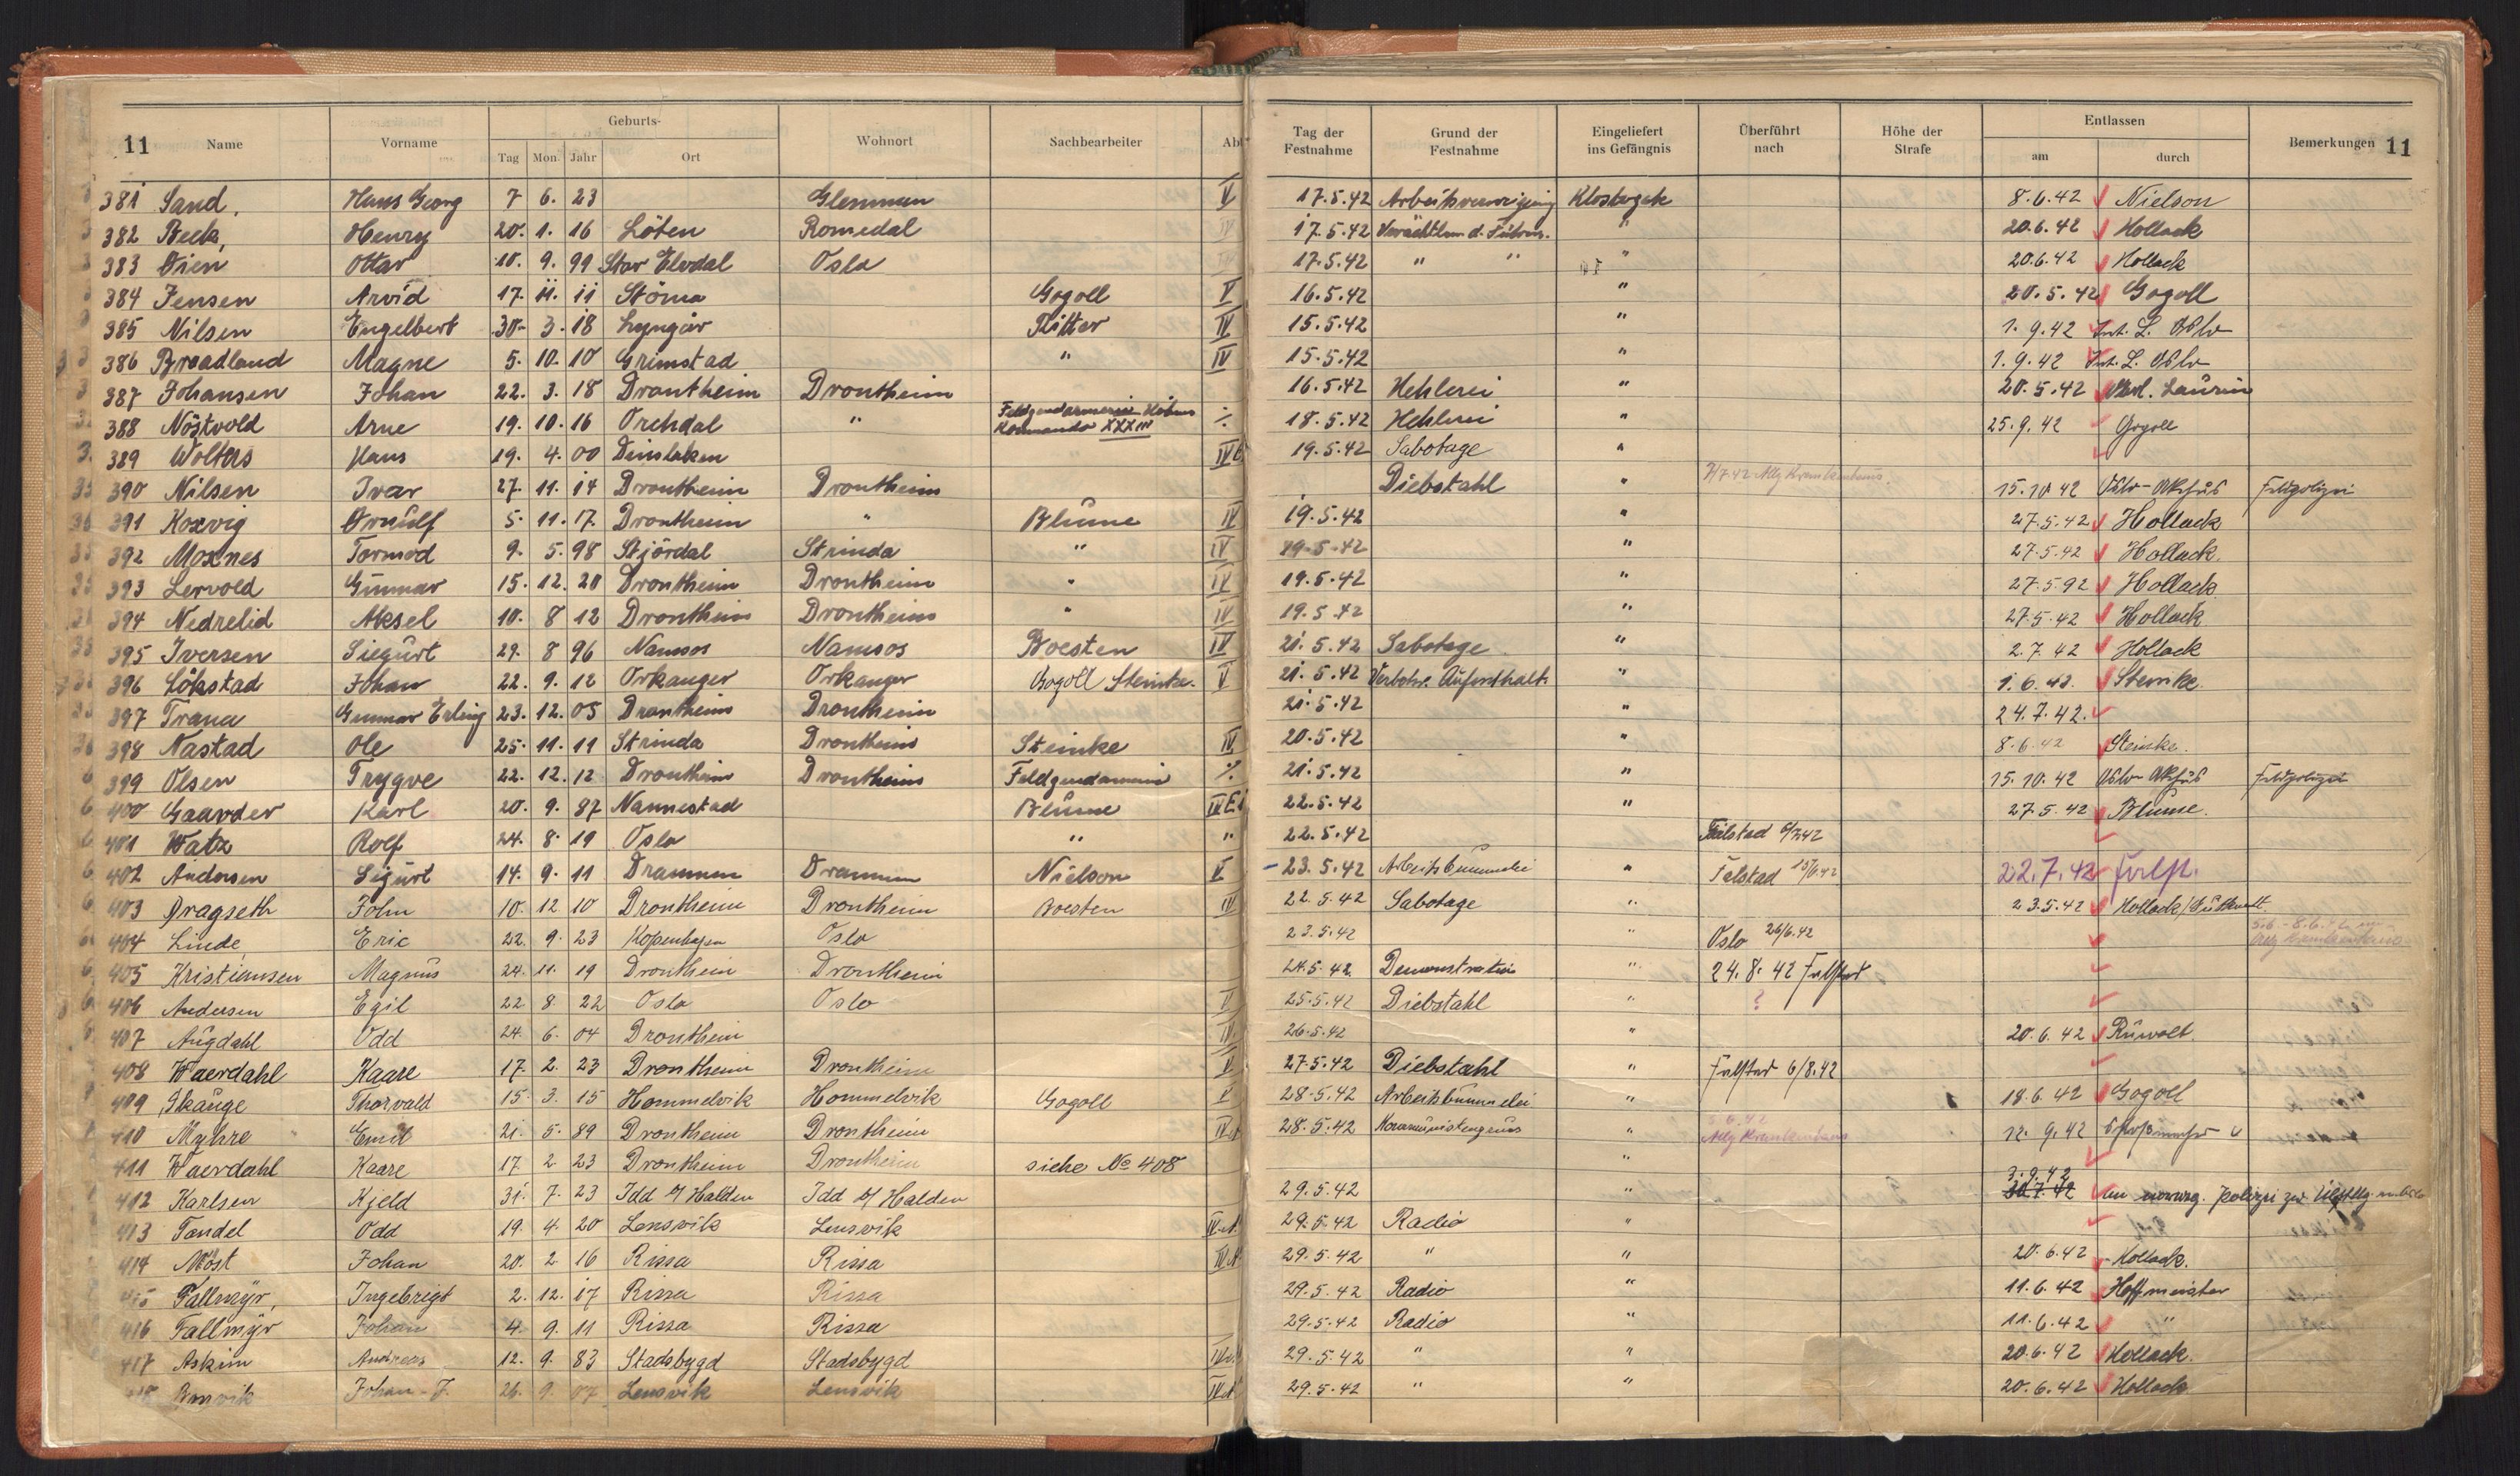 11 Name Vorname Geburts- Tag Mon. Jahr Ort Wohnort Sachbearbeiter Abt Tag der Festnahme Grund der Festnahme Eingeliefert ins Gefängnis Überführt nach Höhe der Strafe Entlassen am durch Bemerkungen 11
381 Sand, Hans Georg 7 6. 23 Glemmen V 17.5.42 Arbeitsverweigerung 8.6.42 Nielson
382 Beck, Henry 20. 1. 16 Löten Romedal IV 17.5.42 " 20.6.42 Hollack
383 Öien Ottar 10. 9. 99 Stor Elvdal Oslo 17.5.42 " " " 20.6.42 Hollack
384 Jensen Arvid 17. 11. 11 Störna Gogoll V 16.5.42 " 20.5.42 Gogoll
385 Nilsen Engelbert 30. 3. 18 Lyngör Ritter IV 15.5.42 " 1.9.42 Int. L. Oslo
386 Broadland Magne 5. 10. 10 Grimstad " IV 15.5.42 " 1.9.42 Int. L. Oslo
387 Johansen Johan 22. 3. 18 Drontheim Drontheim 16.5.42 Hehlerei " 20.5.42 Laurin
388 Nöstvold Arne 19. 10. 16 Orchdal " Feldgendarmerie Kommando XXXIII ./. 18.5.42 Hehlerei " 25.9.42 Gogoll
389 Wolters Hans 19. 4. 00 Dinslaken IV 19.5.42 Sabotage "
390 Nilsen Ivar 27. 11. 14 Drontheim Drontheim Diebstahl " 7/7.42 Allg Krankenhaus 15.10.42 Oslo-Akshus Feldpolizei
391 Koxvig Ornulf 5. 11. 17. Drontheim " Blume IV 19.5.42 " 27.5.42 Hollack
392 Moxnes Tormod 9. 5. 98 Stjördal Strinda " IV 19.5.42 " 27.5.42 Hollack.
393 Lervold Gunnar 15. 12. 20 Drontheim Drontheim " IV 19.5.42 " 27.5.92 Hollack
394 Nedrelid Aksel 10. 8 12 Drontheim Drontheim " IV 19.5.42 " 27.5.42 Hollack
395 Iversen Siegurt 29. 8 96 Namsos Namsos Boesten IV 21.5.42 Sabotage " 2.7.42 Hollack
396 Lökstad Johan 22. 9. 12 Orkanger Orkanger Gogoll Steinke. V 21.5.42 Verbote. Aufenthalt. " 1.6.42. Steinke.
397 Trana Gunnar Erling 23. 12. 05 Drontheim Drontheim 21.5.42 " 24.7.42.
398 Nastad Ole 25. 11. 11 Strinda Drontheim Steinke IV 20.5.42 " 8.6.42 Steinke.
399 Olsen Trygve 22. 12. 12 Drontheim Drontheim Feldgendarmerie ./. 21.5.42 " 15.10.42 Oslo Akshus Feldpolizei
400 Gaarder Karl 20. 9. 87 Nannestad Blume IV E 22.5.42 " 27.5.42 Blume.
401 Watz Rolf 24. 8. 19 Oslo " " 22.5.42 Falstad 6/7.42
402 Andersen Sigurt 14. 9. 11 Drammen Drammen Nielson V 23.5.42 Arbeitsbummelei " Falstad 15/6.42 22.7.42 Falst.
403 Dragseth John 10. 12 10 Drontheim Drontheim Boesten IV 22.5.42 Sabotage " 23.5.42 Hollack/
404 Linde Eric 22. 9. 23 Kopenhagen Oslo 23.5.42 " Oslo 26/6.42 Allg Krankenhaus
405 Kristiansen Magnus 24. 11. 19 Drontheim Drontheim 24.5.42 Demonstration " 24.8.42 Falstad
406 Andersen Egil 22 8. 22 Oslo Oslo V 25.5.42 Diebstahl " ?
407 Augdahl Odd 24. 6. 04 Drontheim IV 26.5.42 " 20.6.42 Ruwolt.
408 Waerdahl Kaare 17. 2. 23 Drontheim Drontheim V 27.5.42 Diebstahl " Falstad 6/8.42
409 Skauge Thorvald 15. 3. 15 Hommelvik Hommelvik Gogoll V 28.5.42 Arbeitsbummelei " 18.6.42 Gogoll
410 Myhre Emil 21. 5. 89 Drontheim Drontheim IV A 28.5.42 Kommunistengruss " Allg Krankenhaus 12.9.42
411 Waerdahl Kaare 17. 2 23 Drontheim Drontheim siehe No 408 "
412 Karlsen Kjeld 31. 7. 23 Idd b/ Halden Idd b/ Halden 29.5.42 " 3.9.42 30.7.42 an norweg. Polizei zur
413 Tandel Odd 19. 4. 20 Lensvik Lensvik IV A. 29.5.42 Radio "
414 Möst Johan 20. 2 16 Rissa Rissa IV A 29.5.42 " " 20.6.42 Hollack.
415 Fallmyr, Ingebrigt 2. 12. 17 Rissa Rissa 29.5.42 Radio " 11.6.42 Hoffmeister
416 Fallmyr Johan 4. 9. 11 Rissa Rissa 29.5.42 Radio " 11.6.42 "
417 Askim Andreas 12. 9. 83 Stadsbygd Stadsbygd IV A 29.5.42 " " 20.6.42 Hollack.
418 Johan-J. 26. 9. 07 Lensvik Lensvik IV A 29.5.42 " " 20.6.42 Hollack